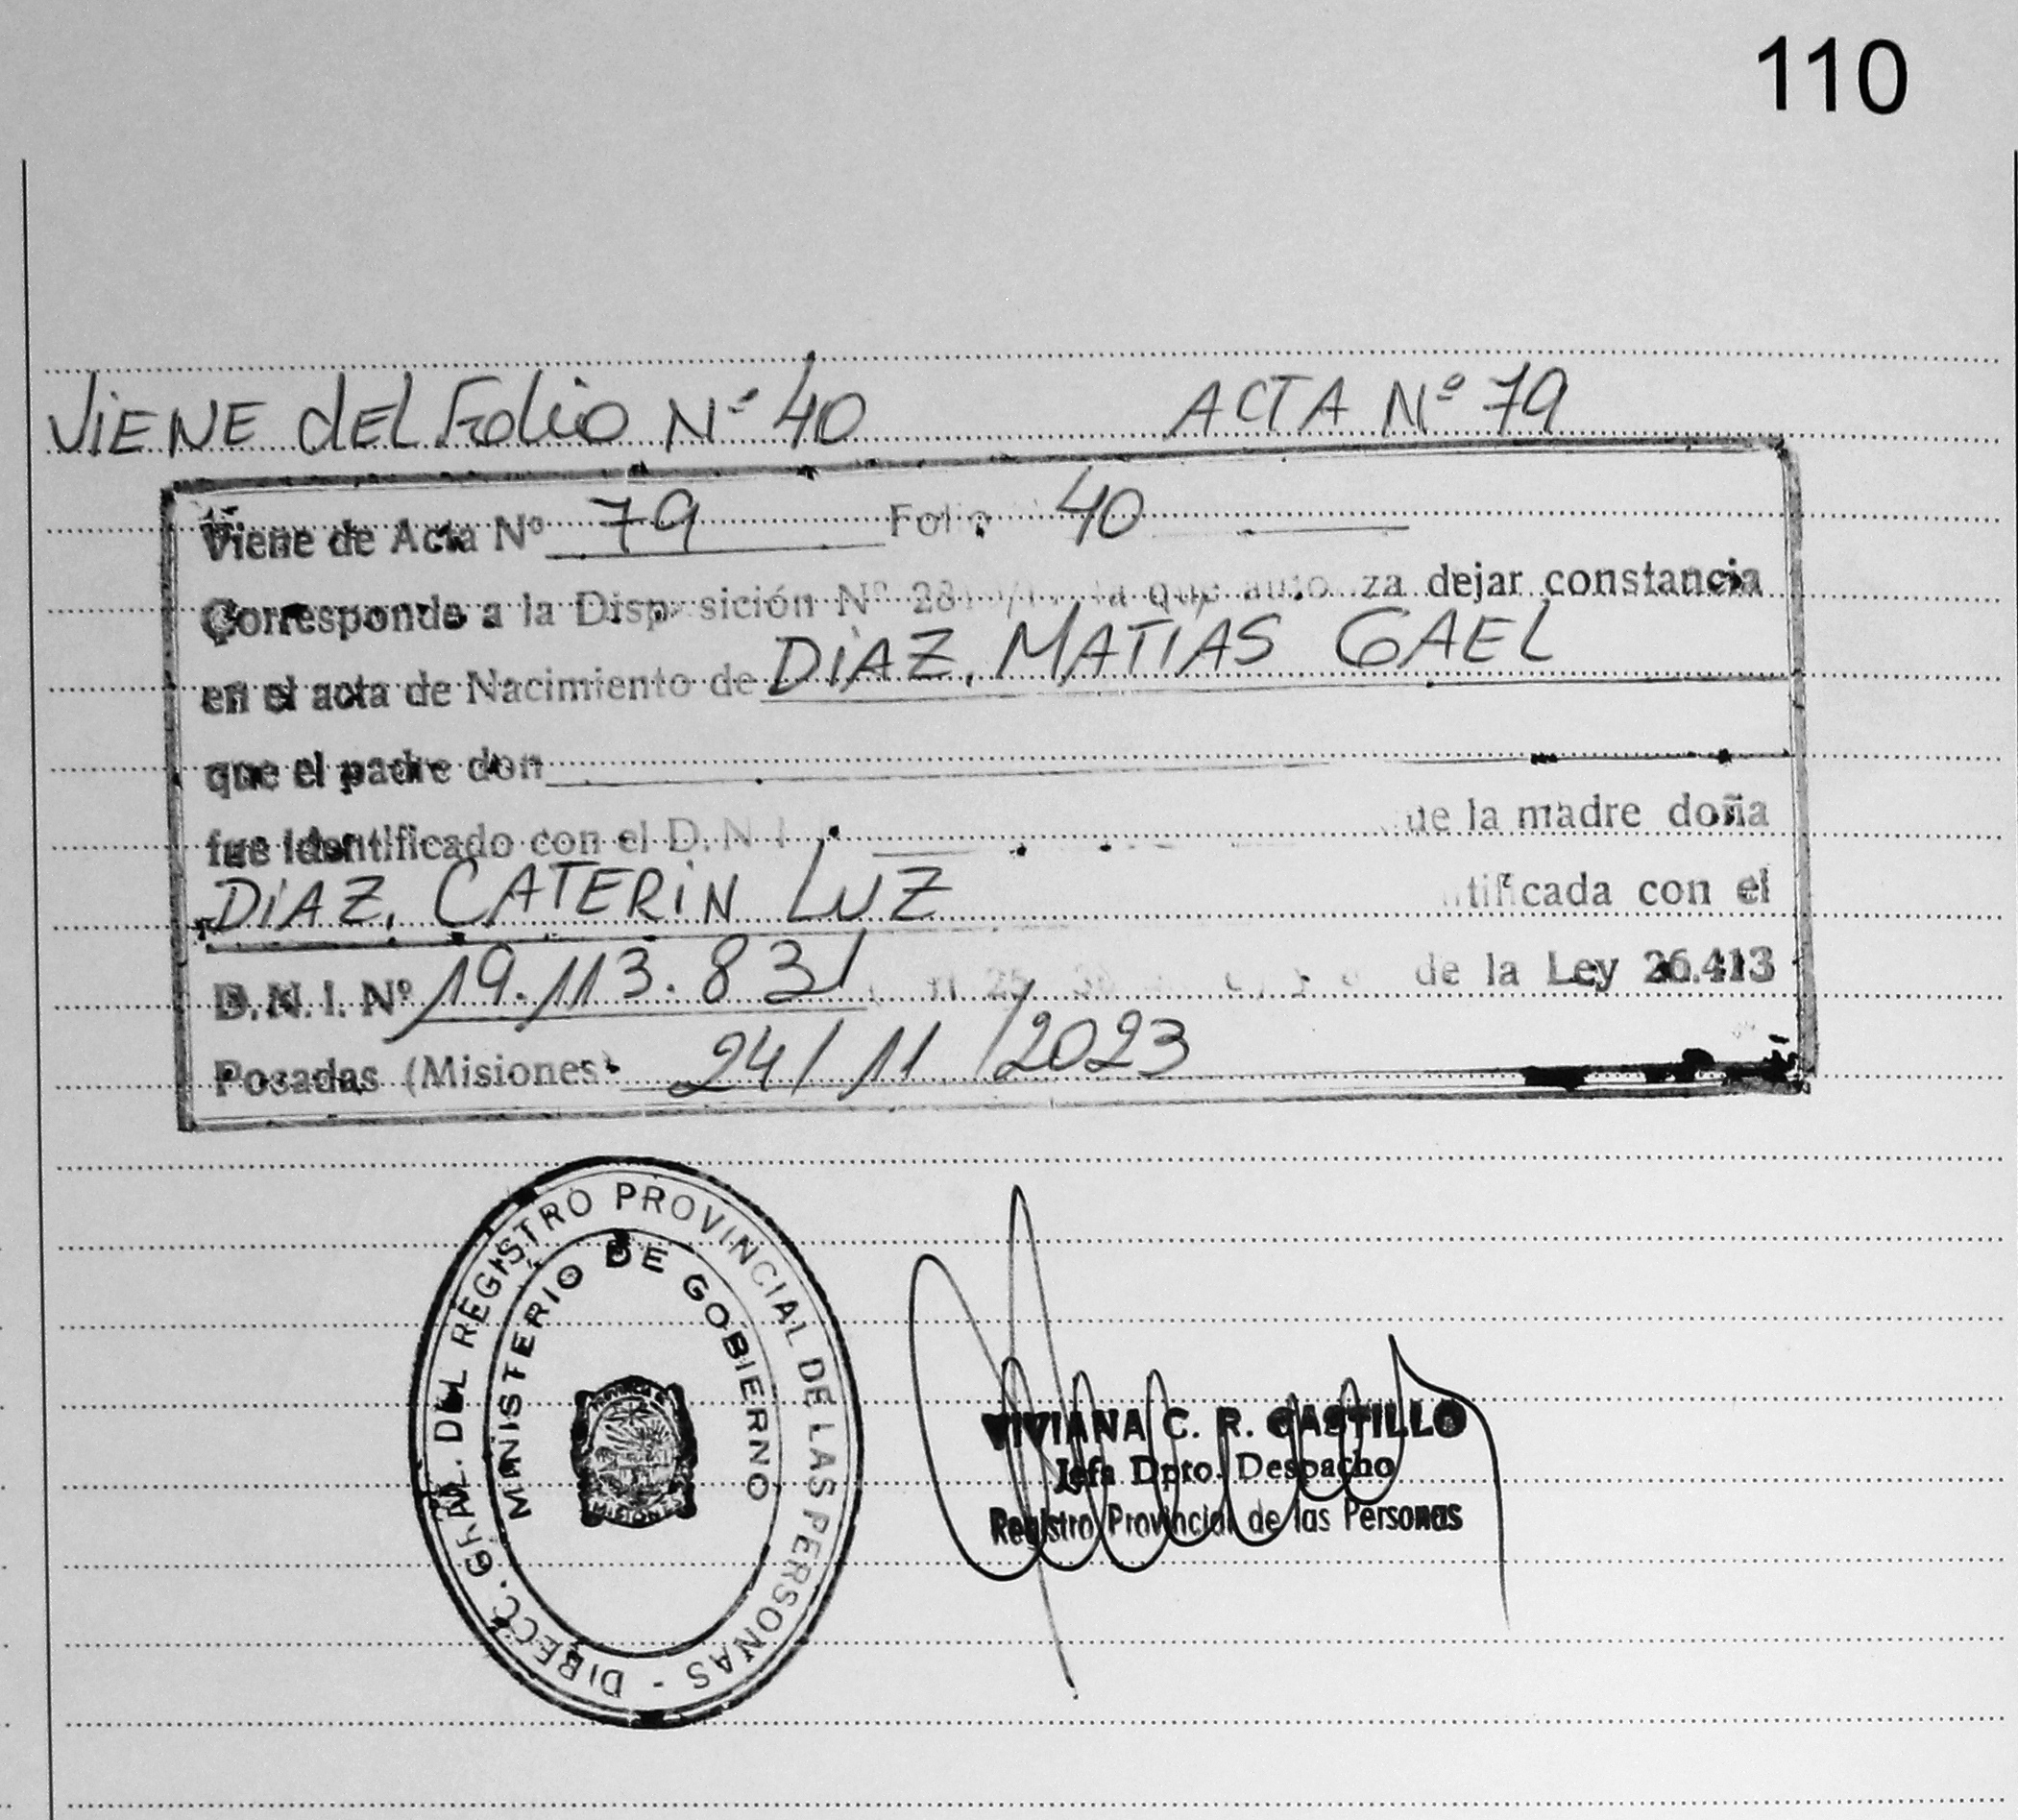 110
ViENE dEL Folio Nº 40 ACTA Nº 79
Viene de Acta Nº 79 Folio 40
Corresponde a la Disposición Nº la que autoriza dejar constancia
en el acta de Nacimiento de DiAZ, MATIAS GAEL
que el padre don
fue identificado con el D.N.I. que la madre doña
DiAZ, CATERiN LUZ identificada con el
D.N.I. Nº 19.113.831 de la Ley 26.413
Posadas (Misiones) 24/11/2023
DIRECC. GRAL. DEL REGISTRO PROVINCIAL DE LAS PERSONAS -
MINISTERIO DE GOBIERNO
PROVINCIA DE
MISIONES
VIVIANA C. R. CASTILLO
Jefa Dpto. Despacho
Registro Provincial de las Personas